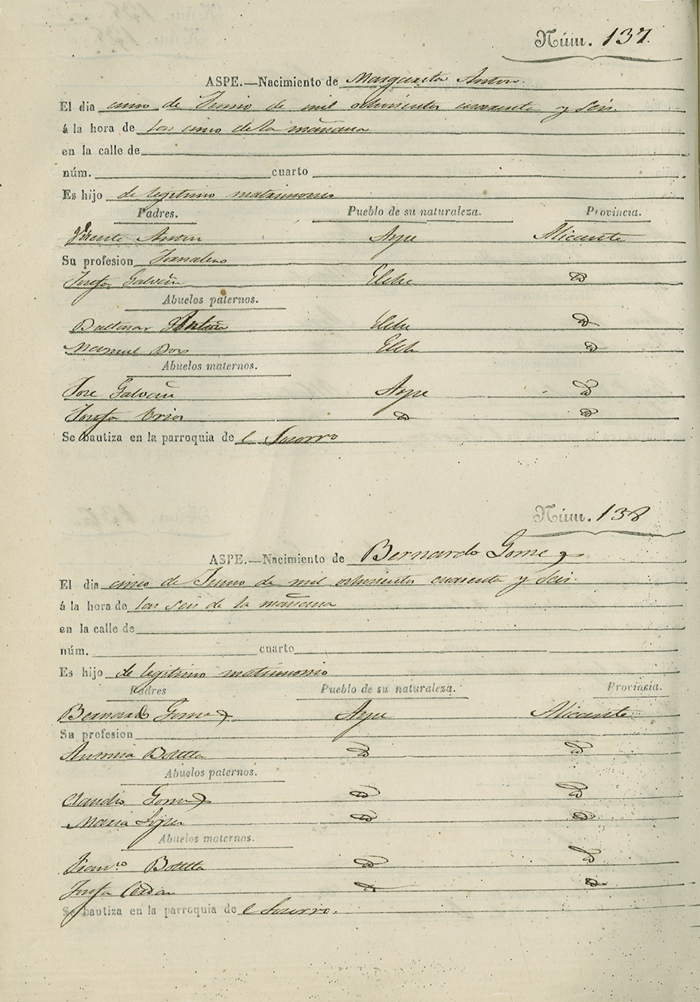 Núm. 137.
ASPE.—Nacimiento de Margarita Anton
El dia cinco de Junio de mil ochocientos cuarenta y seis.
á la hora de las cinco de la mañana
en la calle de
núm. cuarto
Es hijo de legitimo matrimonio
Padres. Pueblo de su naturaleza. Provincia.
Vicente Anton Aspe Alicante
Su profesion Jornalero
Josefa Galvañ Elche d
Abuelos paternos.
Baltasar Antón Elche d
Manuela Elche d
Abuelos maternos.
Jose Galvañ Aspe d
Josefa d d
Se bautiza en la parroquia de el Socorro
Núm. 138
ASPE.—Nacimiento de Bernardo Gomez
El dia cinco de Junio de mil ochocientos cuarenta y seis.
á la hora de las seis de la mañana
en la calle de
núm. cuarto
Es hijo de legitimo matrimonio
Padres Pueblo de su naturaleza. Provincia.
Bernardo Gomez Aspe Alicante
Su profesion
Antonia Botella d d
Abuelos paternos.
Claudio Gomez d d
Maria d d
Abuelos maternos.
Franco. Botella d d
Josefa Cerdan d d
Se bautiza en la parroquia de el Socorro.